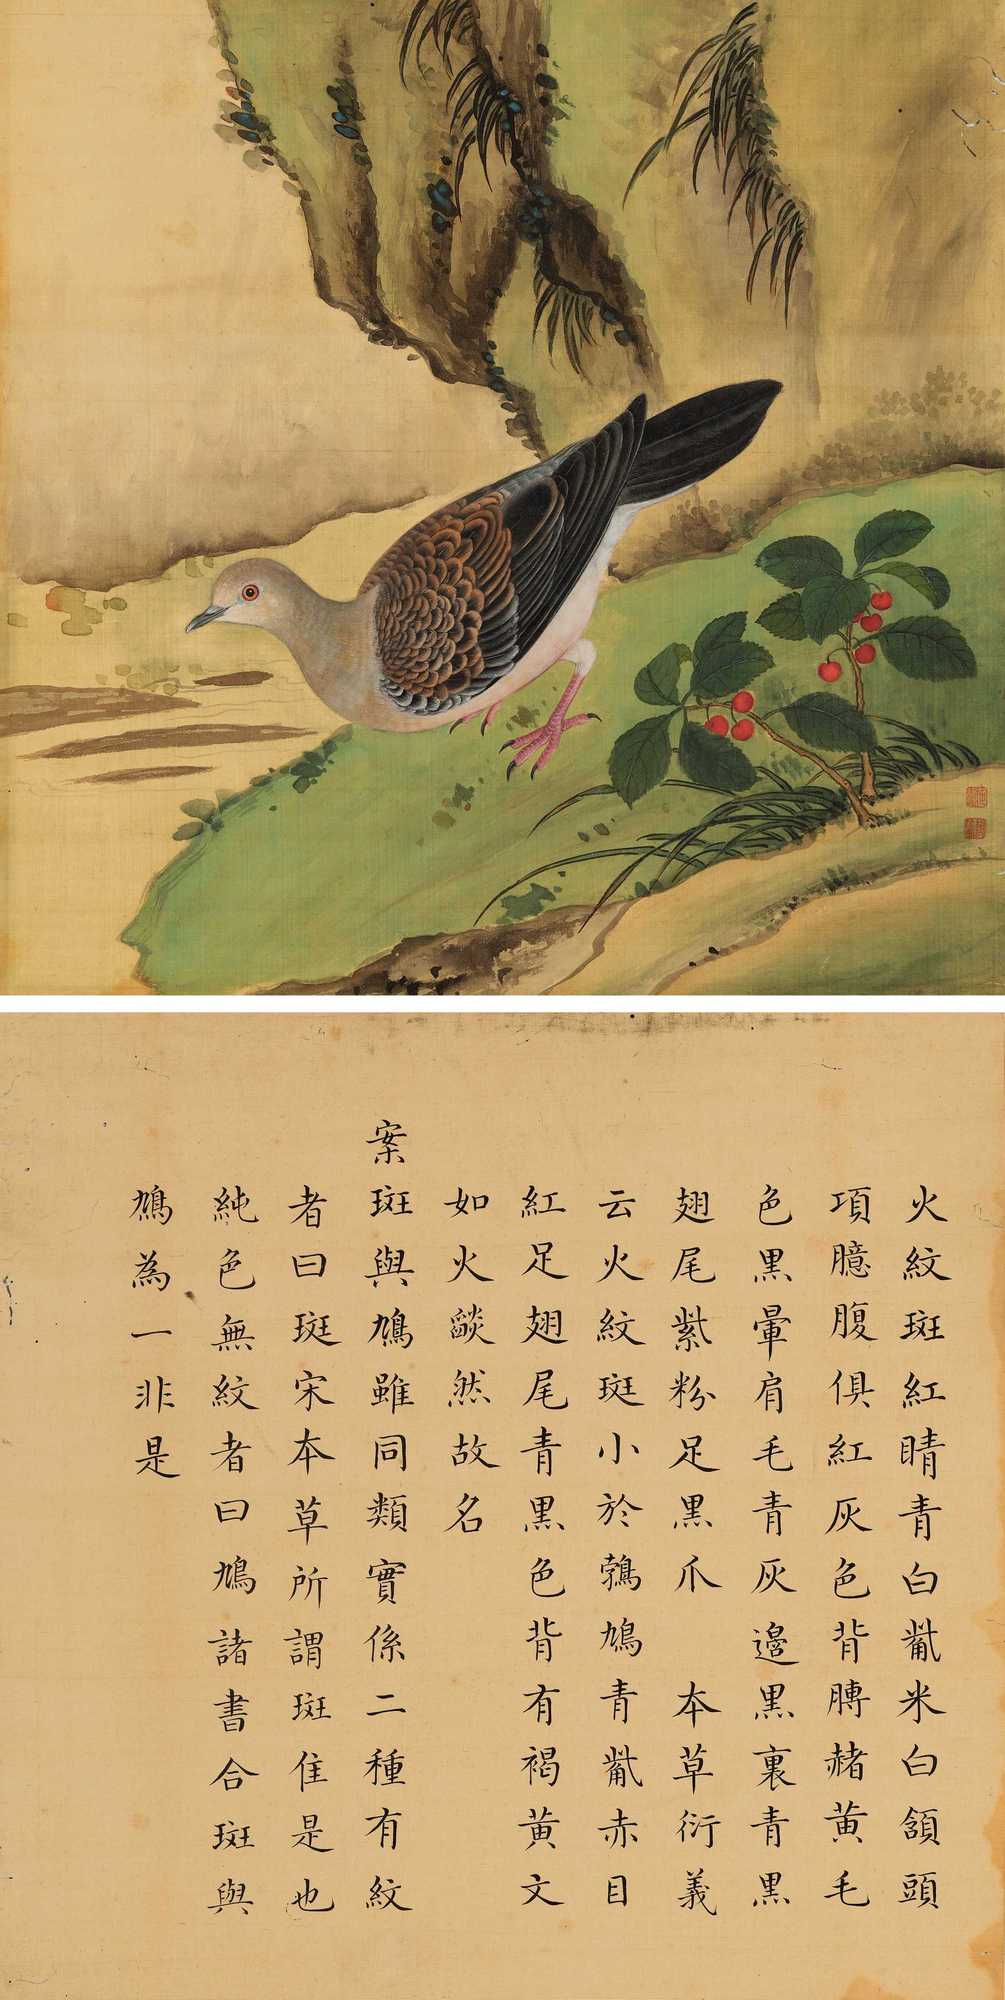 火紋斑紅睛青白觜米白頷頭
項臆腹俱紅灰色背膊赭黄毛
色黑暈肩毛青灰邊黑裏青黑
翅尾紫粉足黑爪　本草衍義
云火紋斑小於鵓鳩青觜赤目
紅足翅尾青黑色背有褐黄文
如火燄然故名
案斑與鳩雖同類實係二種有紋
者曰斑宋本草所謂斑隹是也
純色無紋者曰鳩諸書合斑與
鳩為一非是